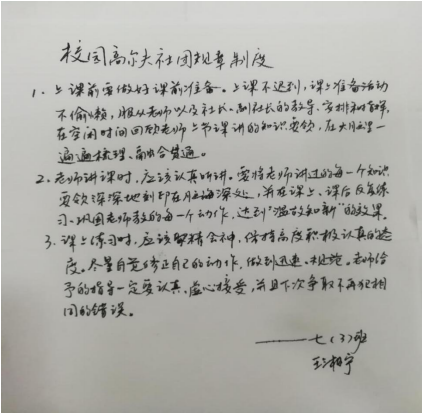 校园高尔夫社团规章制度
1、上课前要做好课前准备。上课不迟到,课上准备活动
不偷懒,服从老师以及社长、副社长的教导、安排和
在空闲时间回顾老师上节课讲的知识要领,在大脑里一
遍遍梳理、融会贯通。
2、老师讲课时,应该认真听讲。要将老师讲过的每一个知识
要领深深地刻印在脑海深处,并在课上、课后反复练
习、巩固老师教的每一个动作,达到“温故知新”的效果。
3、课上练习时,应该聚精会神,保持高度积极认真的态
度。尽量自觉修正自己的动作,做到迅速、规范。老师给
予的指导一定要认真、虚心接受,并且下次争取不再犯相
同的错误。
——七(3)班
王 宁